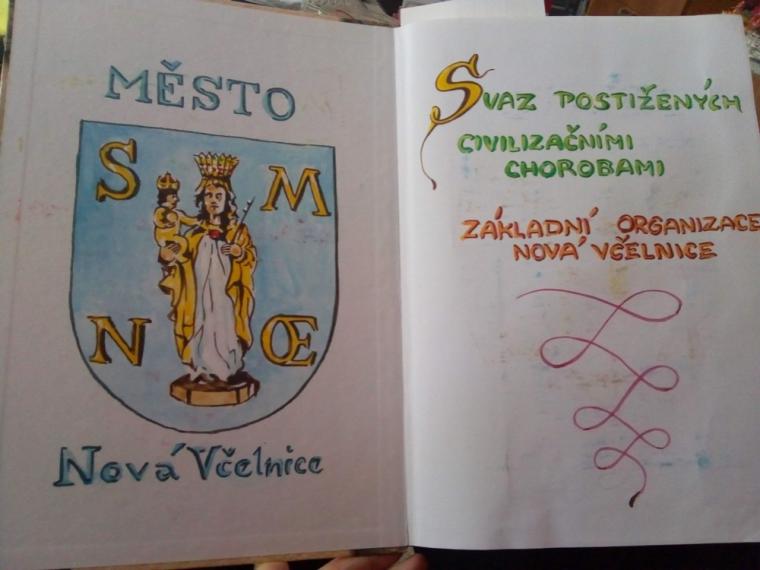 MĚSTO
S M
N Œ
Nová Včelnice
SVAZ POSTIŽENÝCH
CIVILIZAČNÍMI
CHOROBAMI
ZÁKLADNÍ ORGANIZACE
NOVÁ VČELNICE